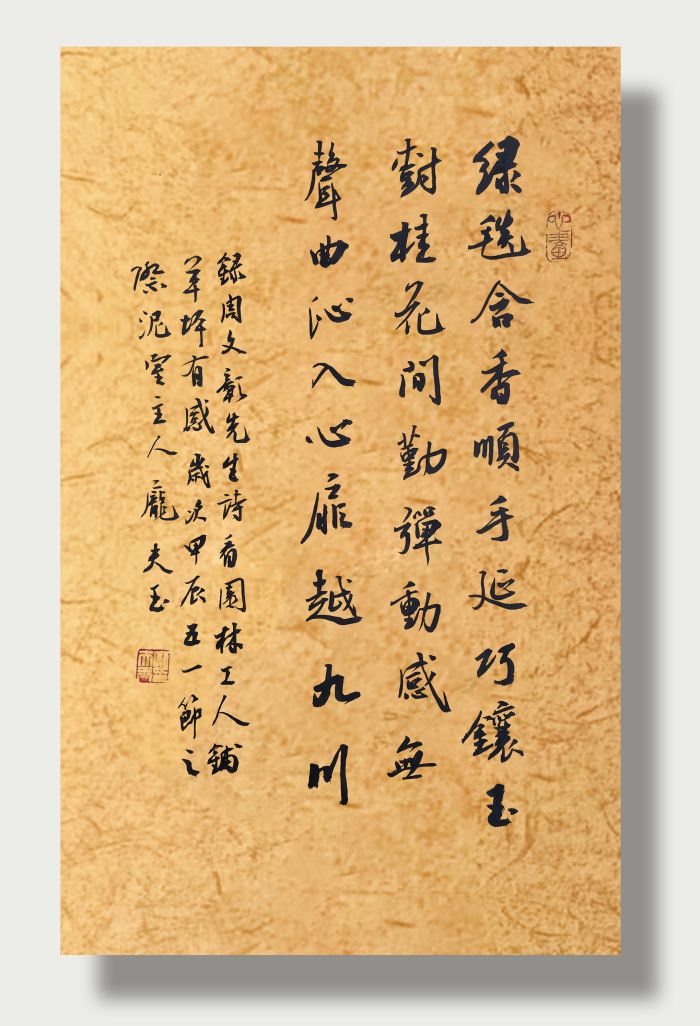 心畫
绿毯含香順手延巧鑲玉
對桂花間勤彈動感無
聲曲沁入心扉越九川
録周文彰先生詩看園林工人鋪
草坪有感歲次甲辰五一節之
際泥主人龐夫玉